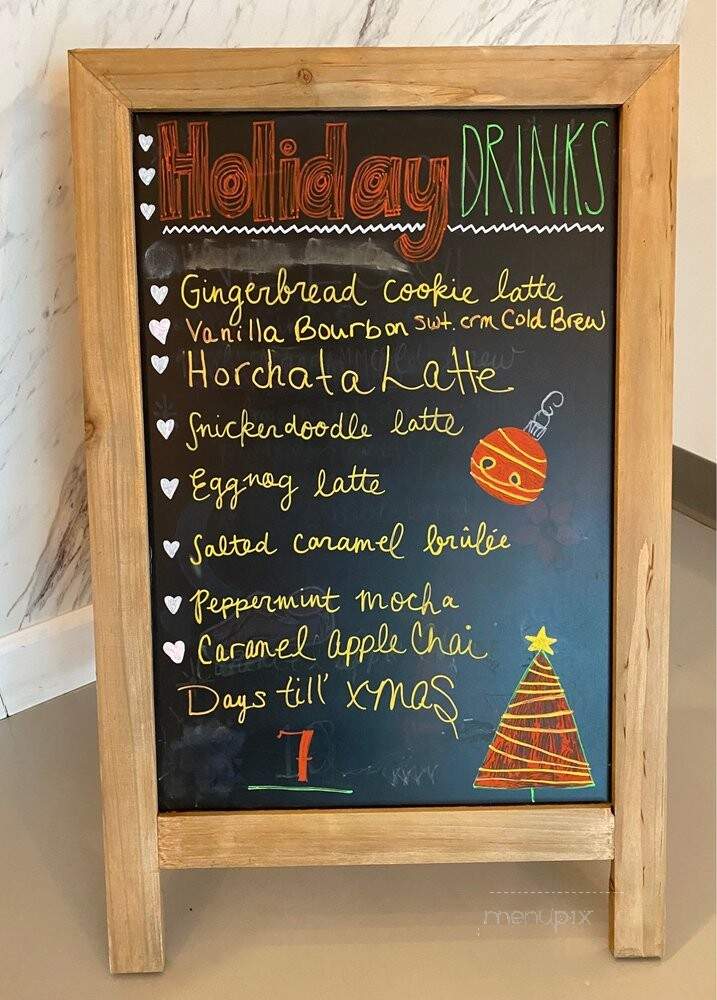 Holiday DRINKS
Gingerbread cookie latte
Vanilla Bourbon swt. crm Cold Brew
Horchata Latte
Snickerdoodle latte
Eggnog latte
Salted caramel brûlée
Peppermint mocha
Caramel apple Chai
Days till' xmas
7
menupix